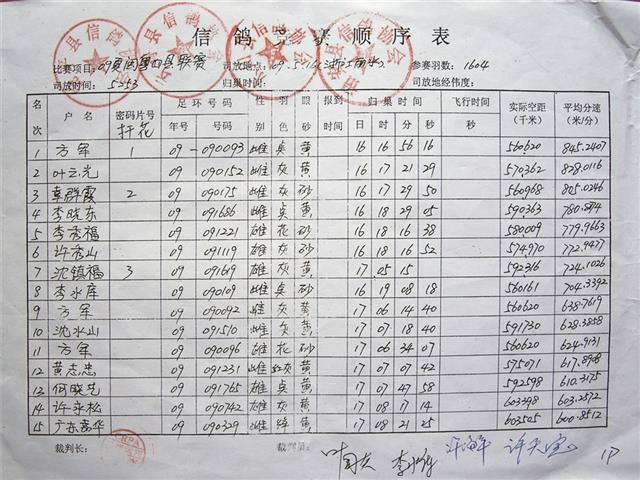 信鸽竞赛顺序表
比赛项目: 09 四县联赛 司放地点: 参赛羽数: 1604
司放时间: 5253 归巢时间: 司放地经纬度:
名次 户名 密码片号 足环号码 性别 羽色 眼砂 报到时间 归巢时间 飞行时间 实际空距(千米) 平均分速(米/分)
年号 号码 日 时 分 秒
1 方军 1 09 -090093 雌 黄 16 16 56 16 560620 845.2407
2 叶立光 09 090152 雌 灰 黄 16 17 21 29 570362 828.0116
3 韩群霞 2 09 090175 雌 灰 砂 16 17 29 50 560968 805.0246
4 李晓东 09 091686 雌 黄 16 18 29 05 590363
5 李秀福 09 091221 雄 花 砂 16 18 16 38 580009 779.9663
6 许秀山 09 091119 雄 灰 砂 16 18 16 52 574970 772.9477
7 沈镇福 3 09 091619 雄 灰 黄 17 05 15 592316 724.1026
8 李水库 09 090109 雌 砂 16 19 08 18 560161 704.3392
9 方军 09 090092 雌 灰 黄 17 06 14 40 560620 638.7619
10 沈水山 09 091510 雌 灰 黄 17 07 18 40 591730 628.3858
11 方军 09 090096 雄 花 砂 17 06 34 07 560620 624.9131
12 黄志忠 09 091231 雌 红灰 黄 17 07 07 42 575071 617.8908
13 何晓艺 09 091765 雄 黄 17 07 47 58 592598 610.3175
14 许永松 09 090742 雄 灰 黄 17 08 17 14 603298 603.2572
15 广东高华 09 090329 雌 绛 黄 17 08 21 25 603505 600.8512
裁判长: 裁判员: